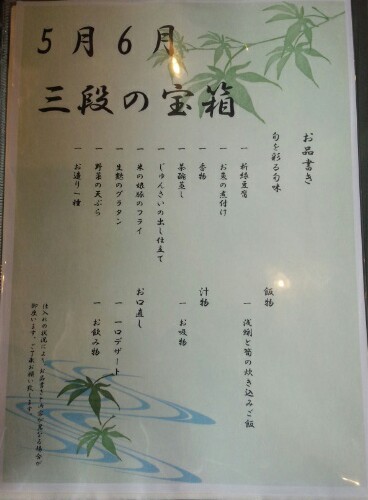 5月6月
三段の宝箱
お品書き
旬を彩る旬味
一 新緑豆富
一 お魚の煮付け
一 香物
一 茶碗蒸し
一 じゅんさいの出し仕立て
一 米の娘豚のフライ
一 生麩のグラタン
一 野菜の天ぷら
一 お造り一種
飯物
一 浅蜊と筍の炊き込みご飯
汁物
一 お吸物
お口直し
一 一口デザート
一 お飲み物
仕入れの状況によりお品書きと内容が異なる場合が
御座います。ご了承お願い致します。